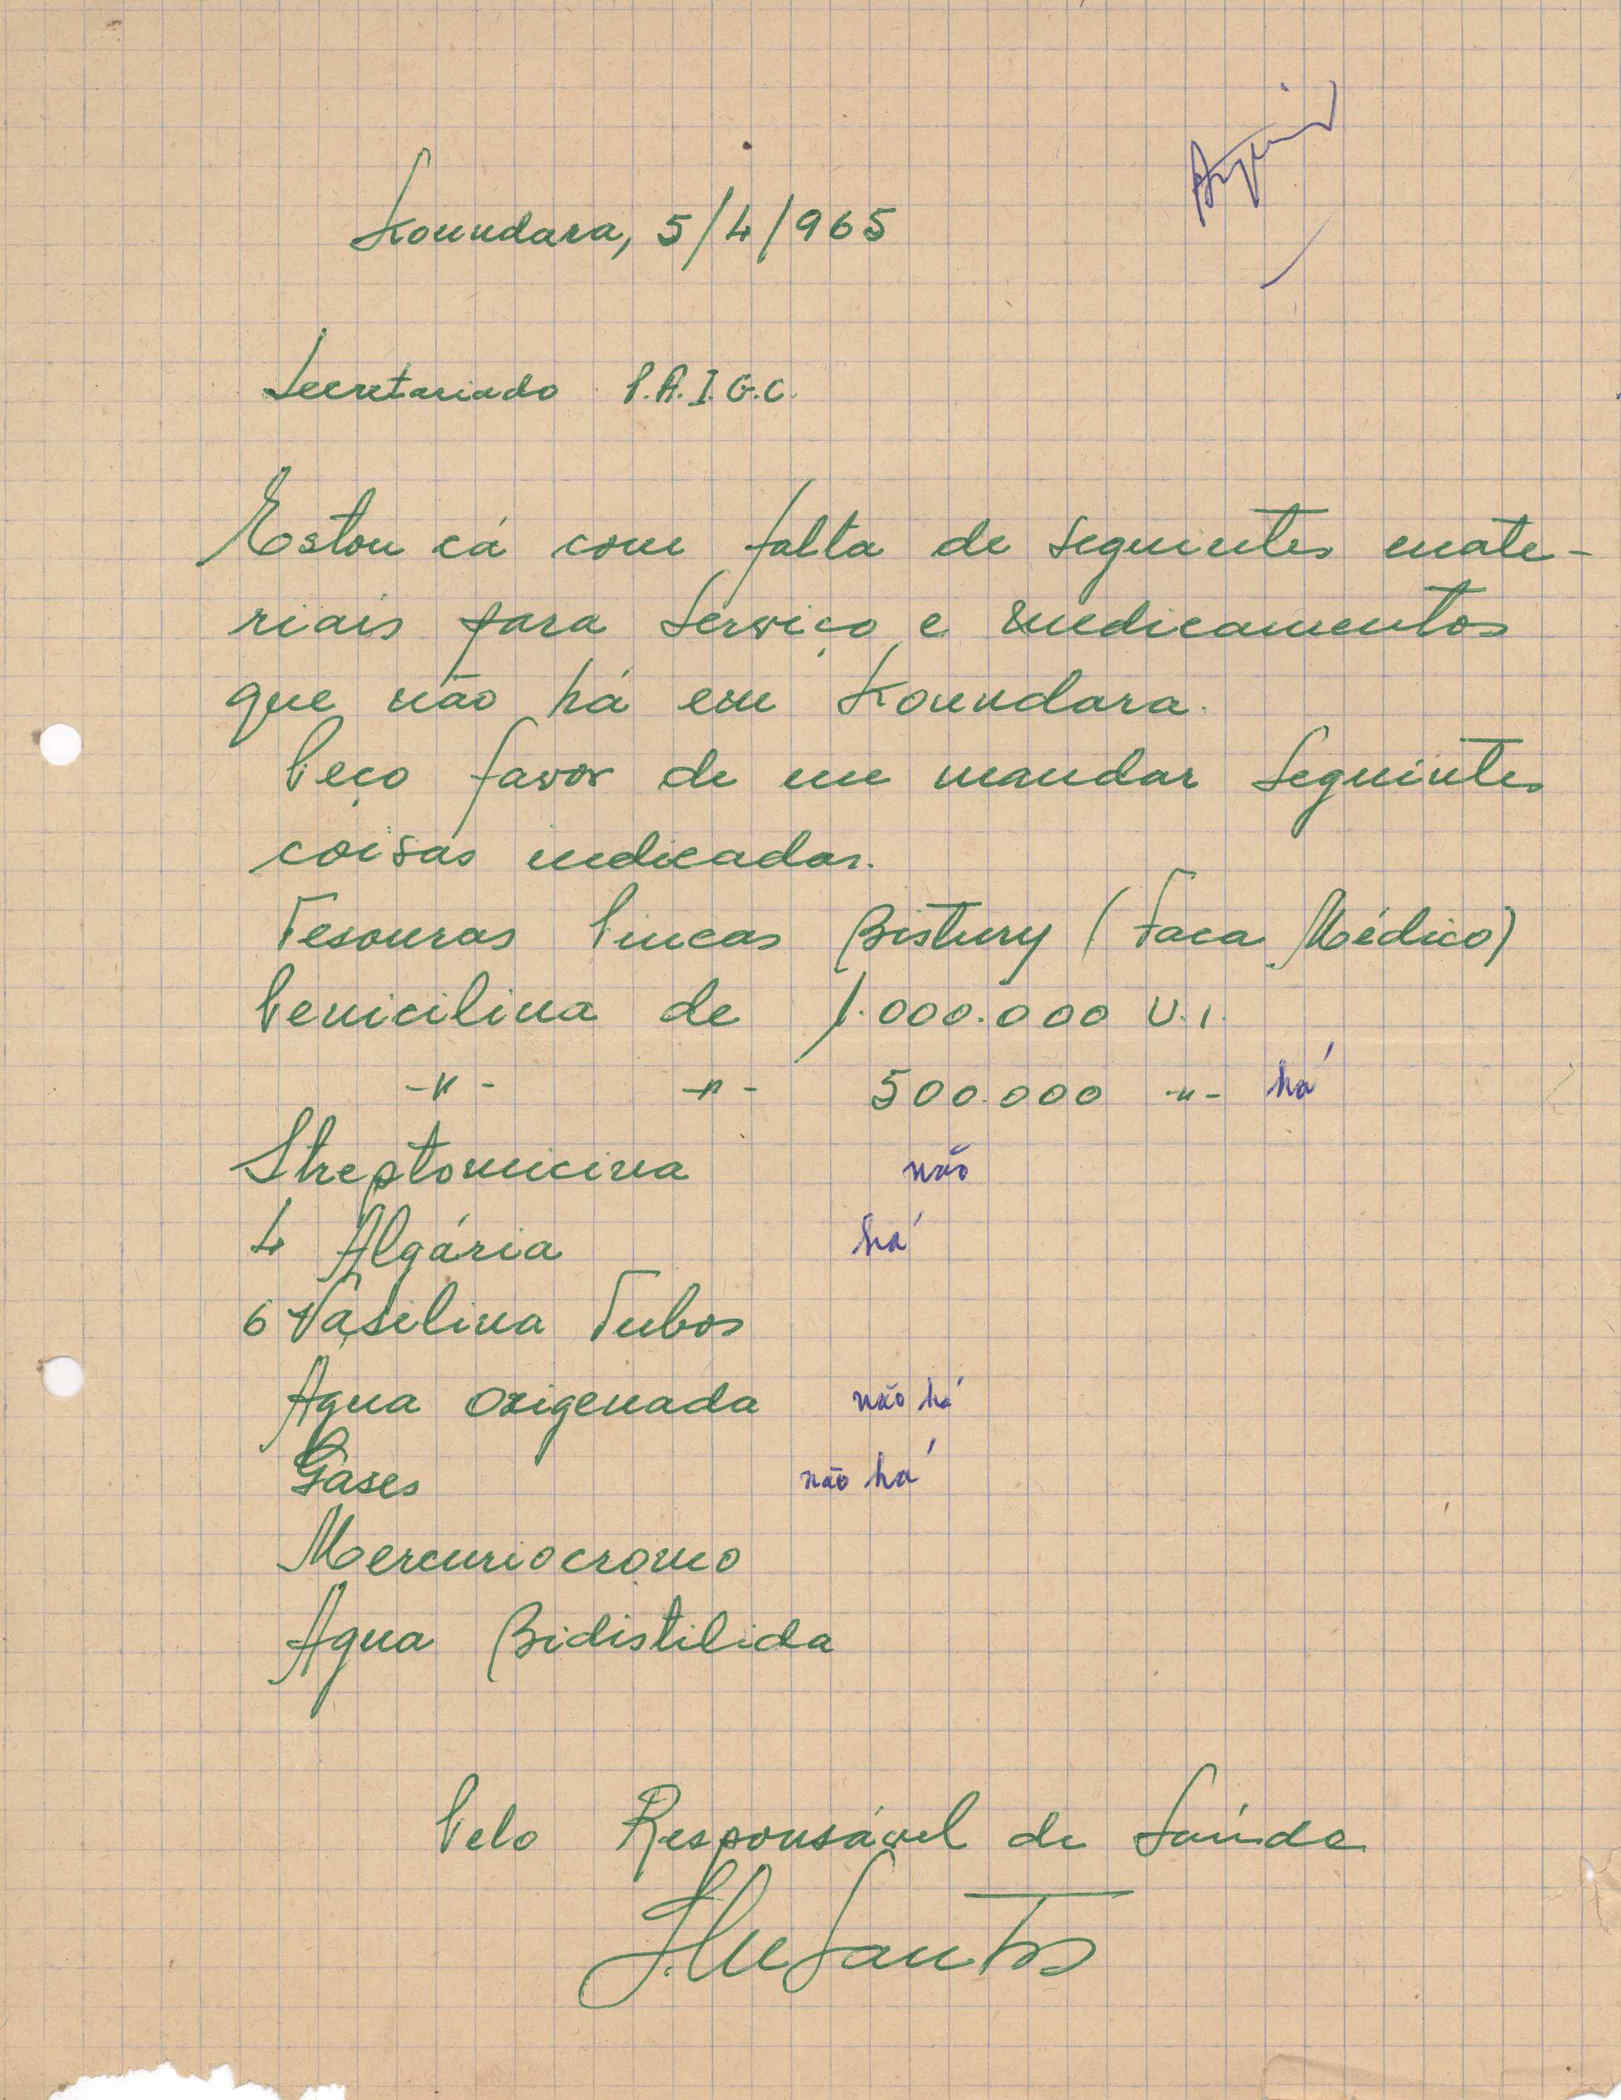 Koundara, 5/4/965
Secretariado P.A.I.G.C.
Estou cá com falta de seguintes mate-
riais para serviço e medicamentos
que não há em Koundara.
Peço favor de me mandar seguintes
coisas indicadas.
Tesouras Pincas Bistury (Faca Médico)
Penicilina de 1.000.000 U.I.
-"- -"- 500.000 -"- há
Streptomicina não
4 Algária há
6 Vasilina Tubos
Agua oxigenada não há
Gases não há
Mercuriocromo
Agua Bidistilida
Pelo Responsável de Saúde
Santos